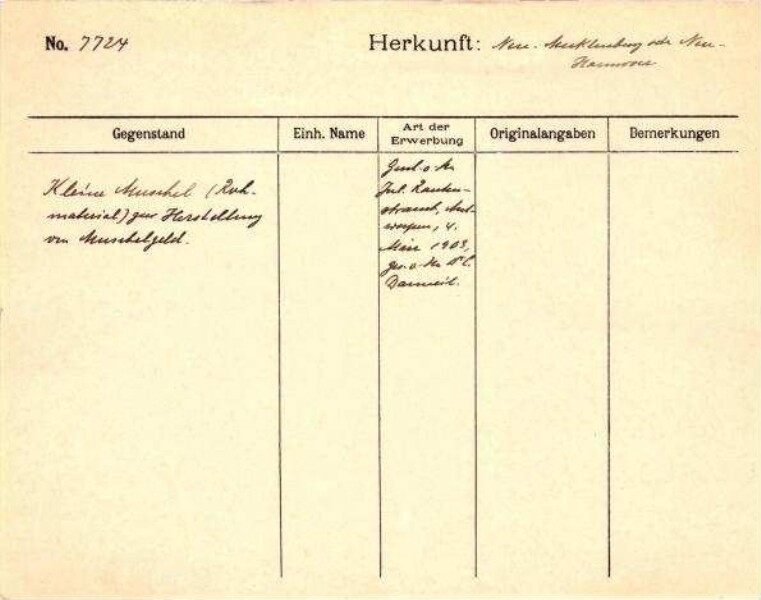 No. 7724
Herkunft: Neu-Mecklenburg oder Neu-
Hannover
Gegenstand
Einh. Name
Art der
Erwerbung
Originalangaben
Bemerkungen
Kleine Muschel (Roh-
material) zur Herstellung
von Muschelgeld.
Jul. Rauten-
strauch, Ant-
werpen, 4.
1903,